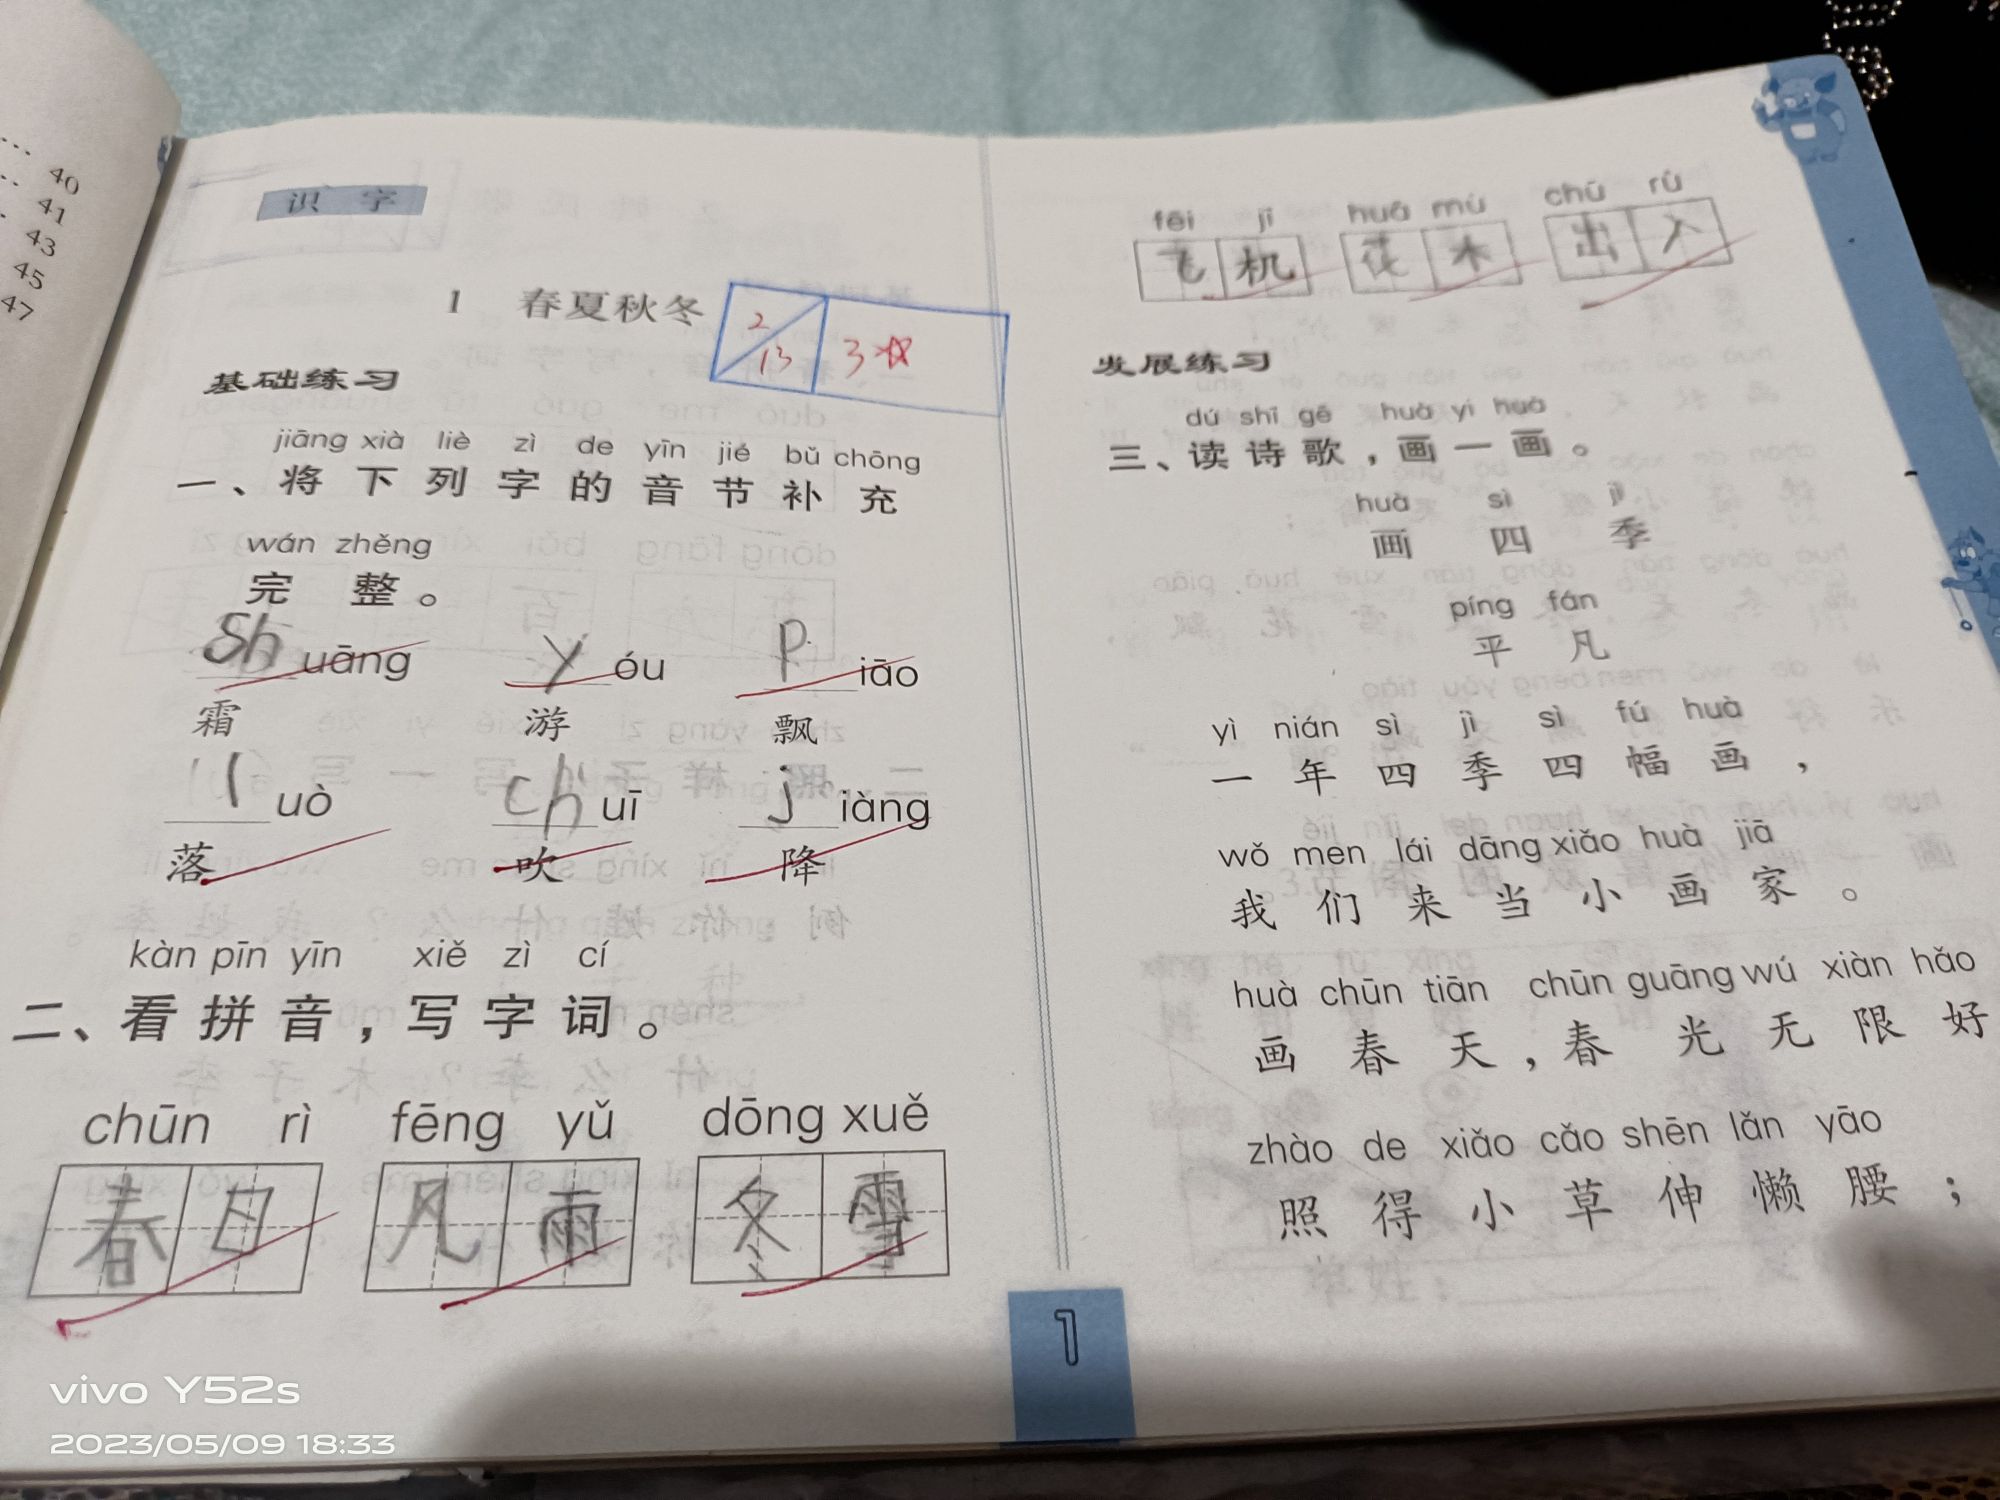 40
41
43
45
47
识 字
1 春夏秋冬
2
13
3
基础练习
jiāng xià liè zì de yīn jié bǔ chōng
一、将下列字的音节补充
wán zhěng
完整。
sh uāng y óu p iāo
霜 游 飘
l uò ch uī j iàng
落 吹 降
kàn pīn yīn xiě zì cí
二、看拼音,写字词。
chūn rì fēng yǔ dōng xuě
春日 风雨 冬雪
fēi jī huā mù chū rù
飞机 花木 出入
发展练习
dú shī gē huà yi huà
三、读诗歌,画一画。
huà sì jì
画四季
píng fán
平凡
yì nián sì jì sì fú huà
一年四季四幅画,
wǒ men lái dāng xiǎo huà jiā
我们来当小画家。
huà chūn tiān chūn guāng wú xiàn hǎo
画春天,春光无限好
zhào de xiǎo cǎo shēn lǎn yāo
照得小草伸懒腰;
1
vivo Y52s
2023/05/09 18:33